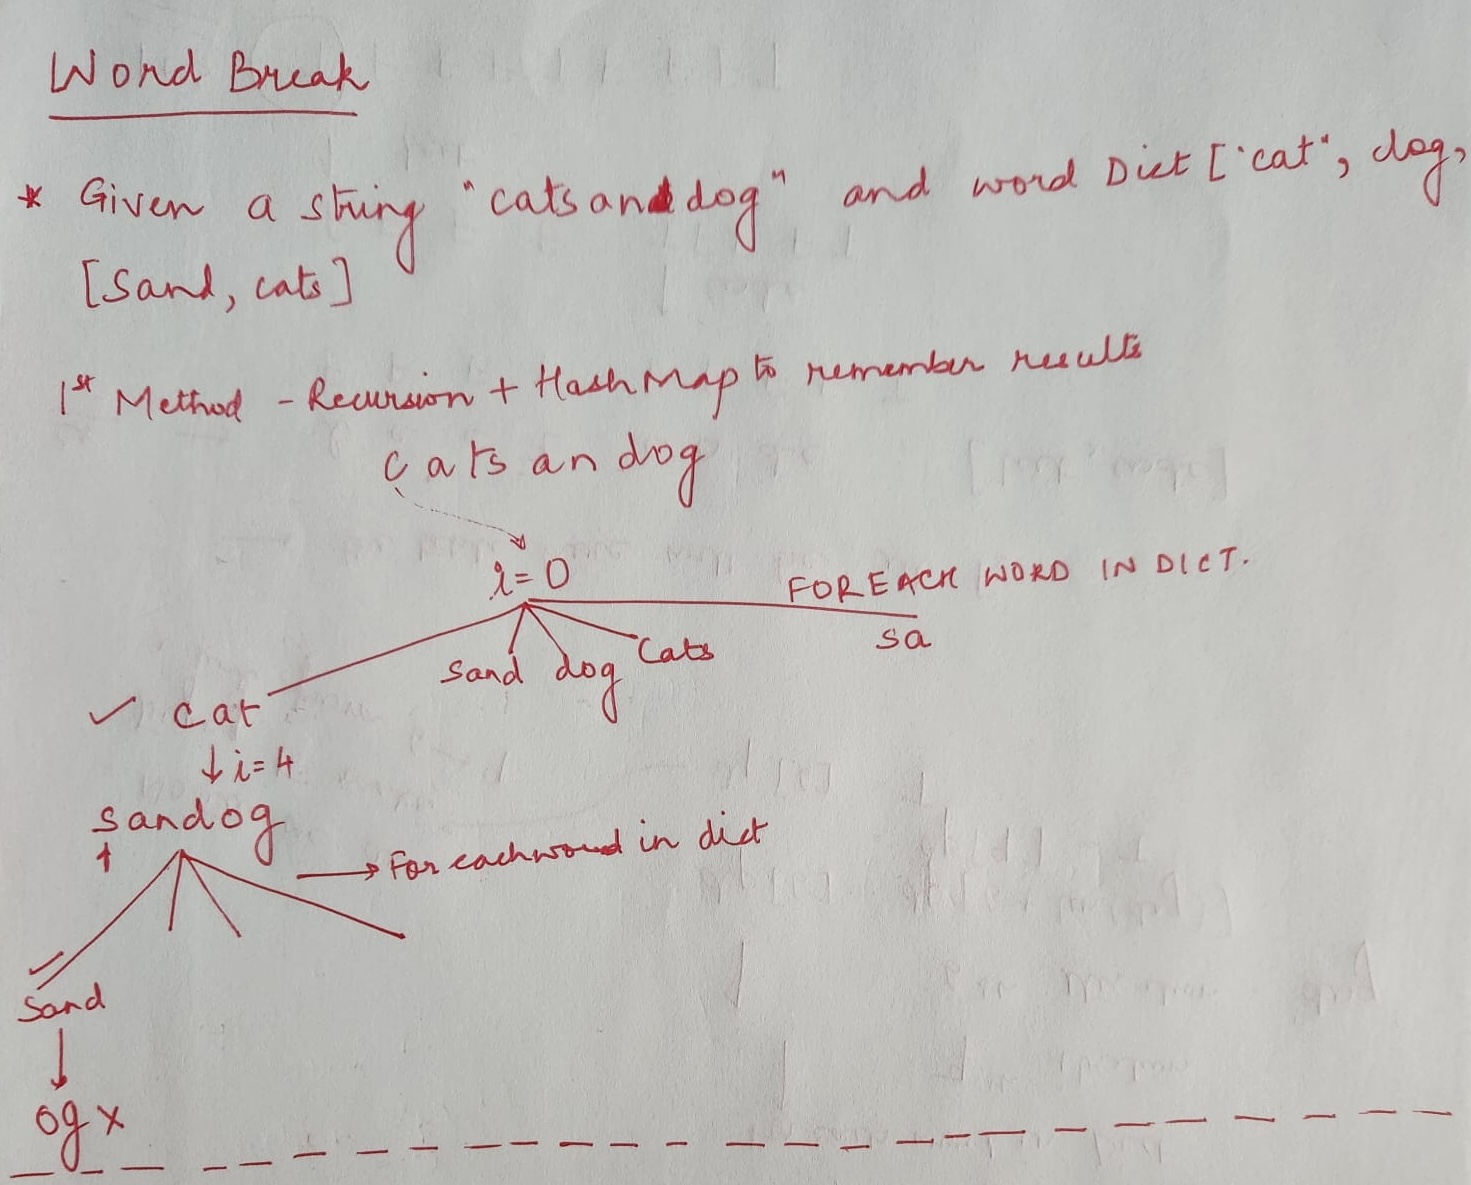 Word Break
* Given a string "catsanddog" and word Dict ["cat", dog,
[Sand, cats]
1st Method - Recursion + HashMap to remember results
catsandog
i=0
FOR EACH WORD IN DICT.
cat sand dog cats sa
↓ i=4
sandog
→ For each word in dict
Sand
↓
og x